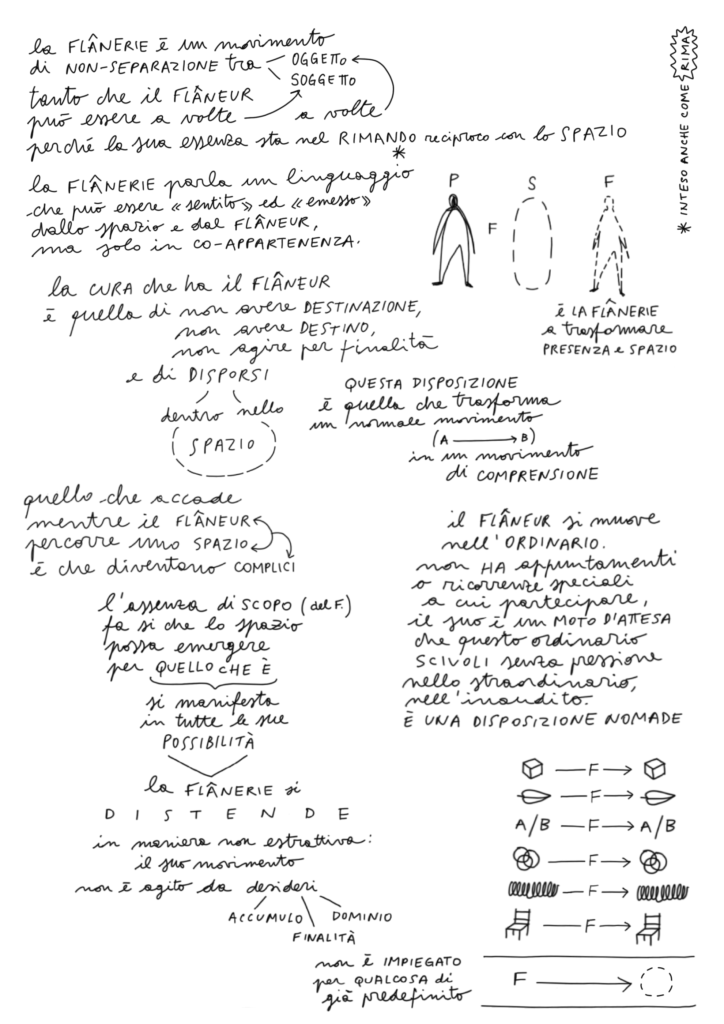 la FLÂNERIE è un movimento
di NON-SEPARAZIONE tra OGGETTO
SOGGETTO
tanto che il FLÂNEUR
può essere a volte a volte
perché la sua essenza sta nel RIMANDO reciproco con lo SPAZIO
*
* INTESO ANCHE COME RIMA
la FLÂNERIE parla un linguaggio
che può essere «sentito» ed «emesso»
dallo spazio e dal FLÂNEUR,
ma solo in CO-APPARTENENZA.
P S F
F
è LA FLÂNERIE
a trasformare
PRESENZA e SPAZIO
la CURA che ha il FLÂNEUR
è quella di non avere DESTINAZIONE,
non avere DESTINO,
non agire per finalità
e di DISPORSI
dentro nello
SPAZIO
QUESTA DISPOSIZIONE
è quella che trasforma
un normale movimento
(A B)
in un movimento
di COMPRENSIONE
quello che accade
mentre il FLÂNEUR
percorre uno SPAZIO
è che diventano COMPLICI
l'assenza di SCOPO (del F.)
fa si che lo spazio
possa emergere
per QUELLO CHE È
si manifesta
in tutte le sue
POSSIBILITÀ
la FLÂNERIE si
DISTENDE
in maniera non estrattiva:
il suo movimento
non è agito da desideri
ACCUMULO DOMINIO
FINALITÀ
non è IMPIEGATO
per QUALCOSA di
già predefinito
il FLÂNEUR si muove
nell'ORDINARIO.
non HA appuntamenti
o ricorrenze speciali
a cui partecipare,
il suo è un MOTO D'ATTESA
che questo ordinario
SCIVOLI senza pressione
nello straordinario,
nell'inaudito.
È UNA DISPOSIZIONE NOMADE
F
F
A/B F A/B
F
F
F
F